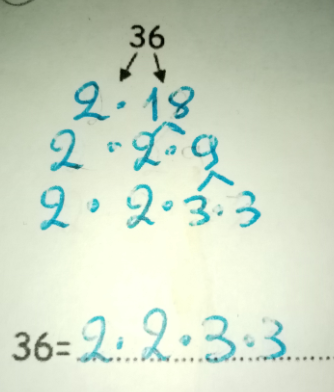 36
2 · 18
2 · 2 · 9
2 · 2 · 3 · 3
36= 2 · 2 · 3 · 3